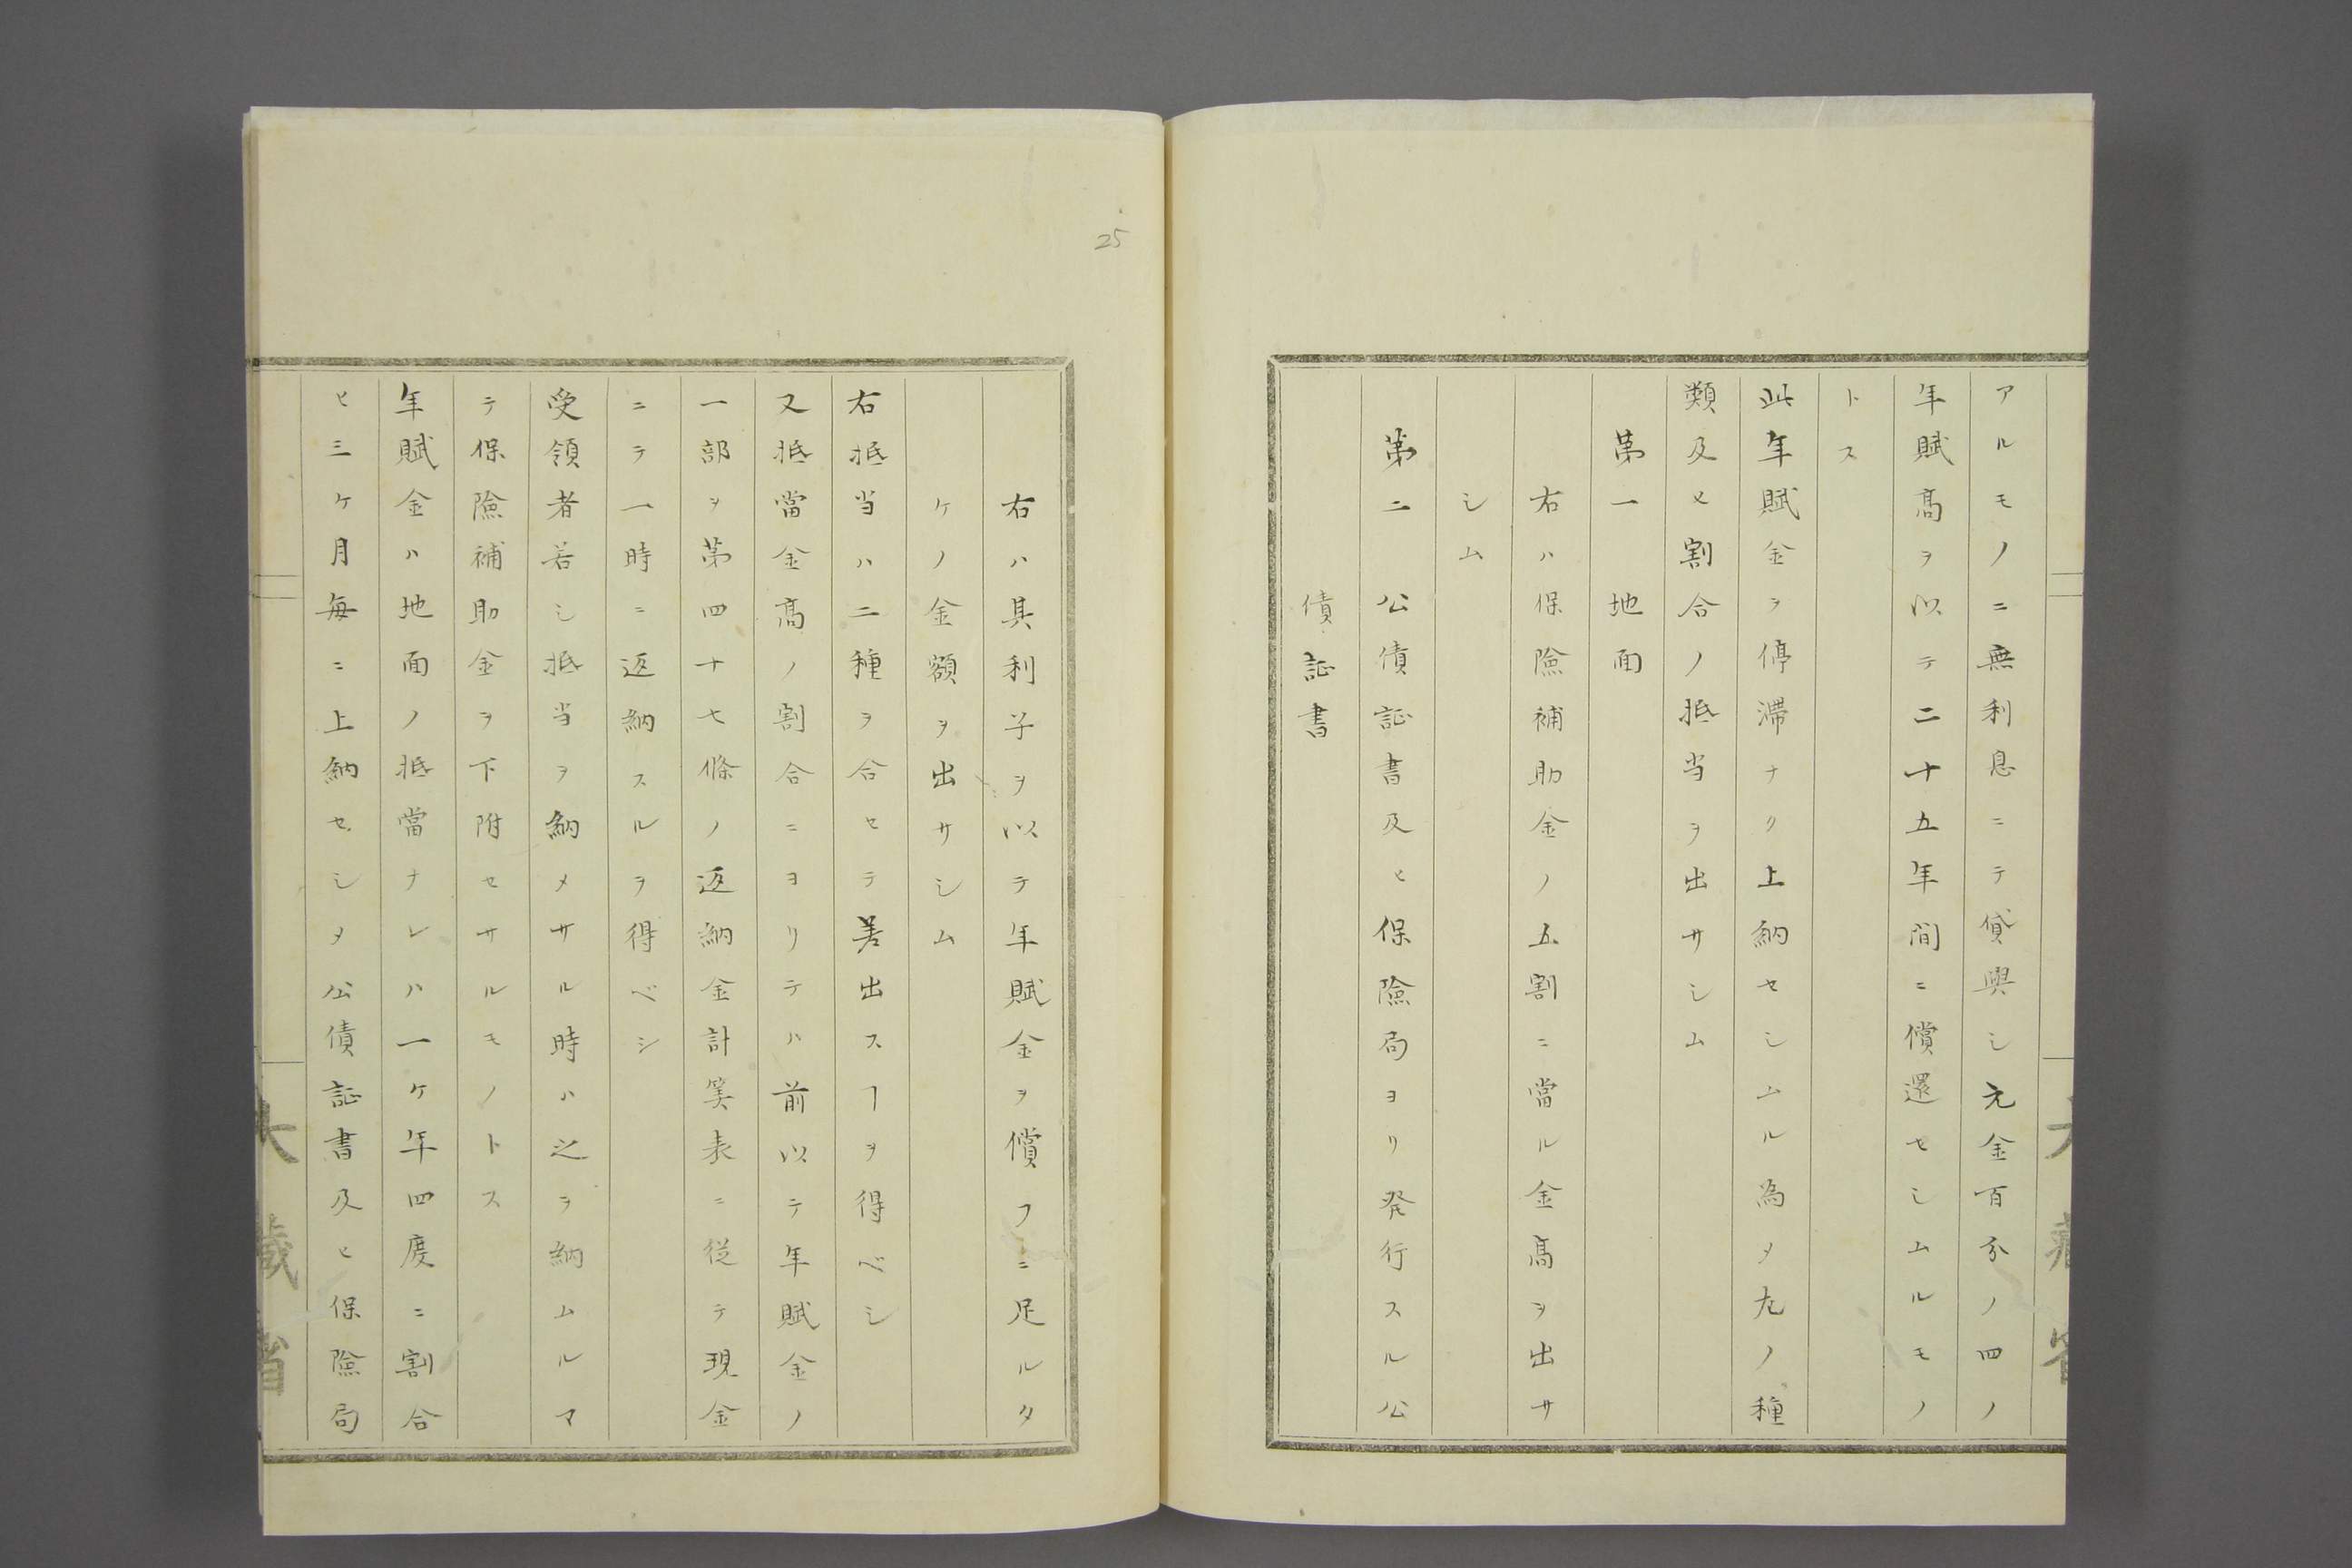 アルモノニ無利息ニテ貸與シ元金百分ノ四ノ
年賦高ヲ以テ二十五年間ニ償還セシムルモノ
トス
此年賦金ヲ停滞ナク上納セシムル為メ左ノ種
類及ヒ割合ノ抵当ヲ出サシム
第一 地面
右ハ保險補助金ノ五割ニ當ル金高ヲ出サ
シム
第二 公債証書及ヒ保險局ヨリ発行スル公
債証書
25
右ハ其利子ヲ以テ年賦金ヲ償フニ足ルタ
ケノ金額ヲ出サシム
右抵当ハ二種ヲ合セテ差出スヿヲ得ベシ
又抵當金高ノ割合ニヨリテハ前以テ年賦金ノ
一部ヲ第四十七條ノ返納金計筭表ニ従テ現金
ニテ一時ニ返納スルヲ得ベシ
受領者若シ抵当ヲ納メサル時ハ之ヲ納ムルマ
テ保險補助金ヲ下附セサルモノトス
年賦金ハ地面ノ抵當ナレハ一ケ年四度ニ割合
ヒ三ケ月毎ニ上納セシメ公債証書及ヒ保險局
大藏省